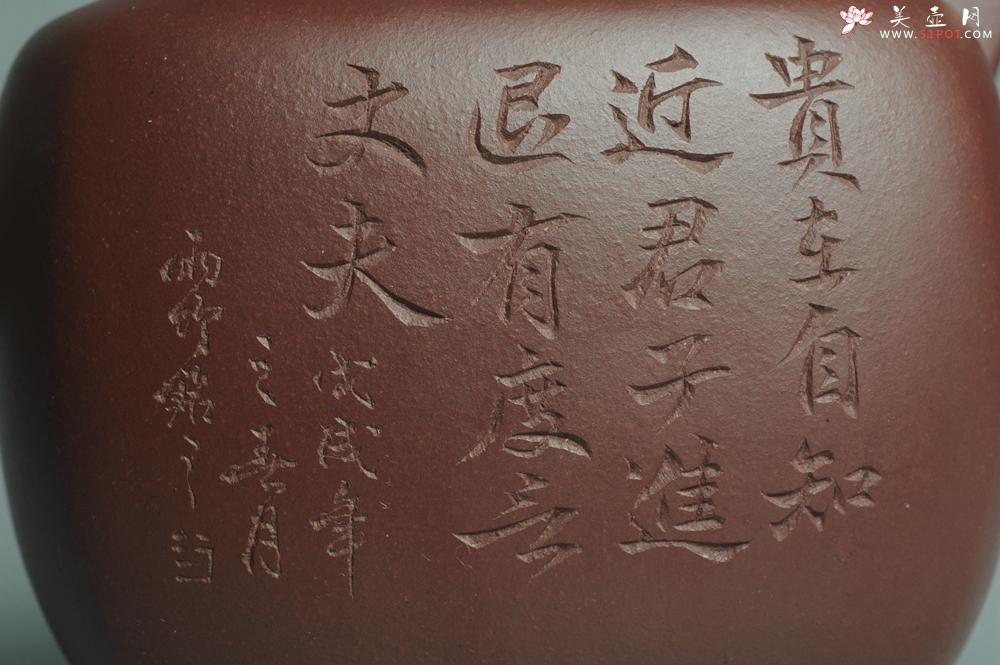 美壶网
WWW.51POT.COM
貴在自知
近君子進
退有度
丈夫戊戌年
之春月
雨竹銘之